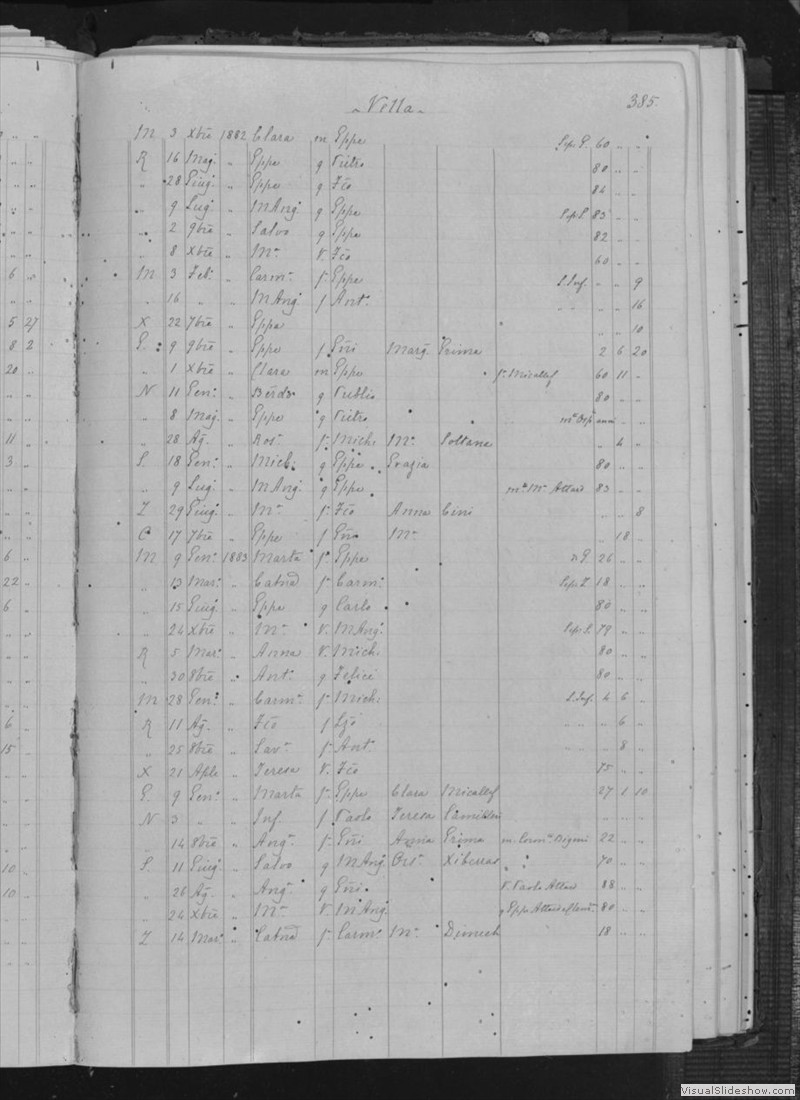 Vella 385.
M 3 Xbre 1882 Clara m Eppe Sep. P. 60 " "
R 16 Mag. " Eppe q Pietro 80 " "
" 28 Giug. " Eppe q Fco 84 " "
" 9 Lug. " MAng. q Eppe Sep. P. 83 " "
" 2 9bre " Salvo q Eppe 82 " "
" 8 Xbre " Ma V. Fco 60 " "
6 " M 3 Feb. " Carma f. Eppe S. Inf. " " 9
" " " 16 " " MAng. f Ant. " " " 16
5 27 X 22 7bre " Eppa " " 10
8 2 G. 9 9bre " Eppe f Gni Marg. Grima 2 6 20
20 " " 1 Xbre " Clara m Eppe f. Micallef 60 11 "
" " N 11 Gen. " Berdo q Publio 80 " "
" " " 8 Mag. " Eppe q Pietro
11 " " 28 Ag. " Ros. f. Mich. Ma Soltana " 4 "
3 " S. 18 Gen. " Mich. q Eppe Grazia 80 " "
" " " 9 Lug. " MAng. q Eppe ma Ma Attard 83 " "
" " Z 29 Giug. " Ma f. Fco Anna Cini " " 8
" " C 17 7bre " Eppe f Gni Ma " 18 "
6 " M 9 Gen. 1883 Marta f. Eppe 26 " "
22 " " 13 Mar. " Catna f. Carm. Sep. P. 18 " "
6 " " 15 Giug. " Eppe q Carlo 80 " "
" " " 24 Xbre " Ma V. MAng. Sep. P. 79 " "
" " R 5 Mar. " Anna V. Mich. 80 " "
" " " 30 8bre " Ant. q Felice 80 " "
" " M 28 Gen. " Carma f. Mich. S. Inf. 4 6 "
6 " R 11 Ag. " Fco f Lzo " " " 6 "
15 " " 25 8bre " Sava f. Ant. " " " 8 "
" " X 21 Aple " Teresa V. Fco 75 " "
" " G. 9 Gen. " Marta f. Eppe Clara Micallef 27 1 10
" " N 3 " " Inf f Paolo Teresa Camilleri " " "
" " " 14 8bre " Anga f. Gni Anna Grima m. Carma 22 " "
10 " S. 11 Giug. " Salvo q MAng. Xiberras 70 " "
10 " " 26 Ag. " Anga q Gni V. Paolo Attard 88 " "
" " " 24 Xbre " Ma V. MAng. q Eppe Attard 80 " "
" " Z 14 Mar. " Catna f. Carm. Ma Dimech 18 " "
VisualSlideshow.com